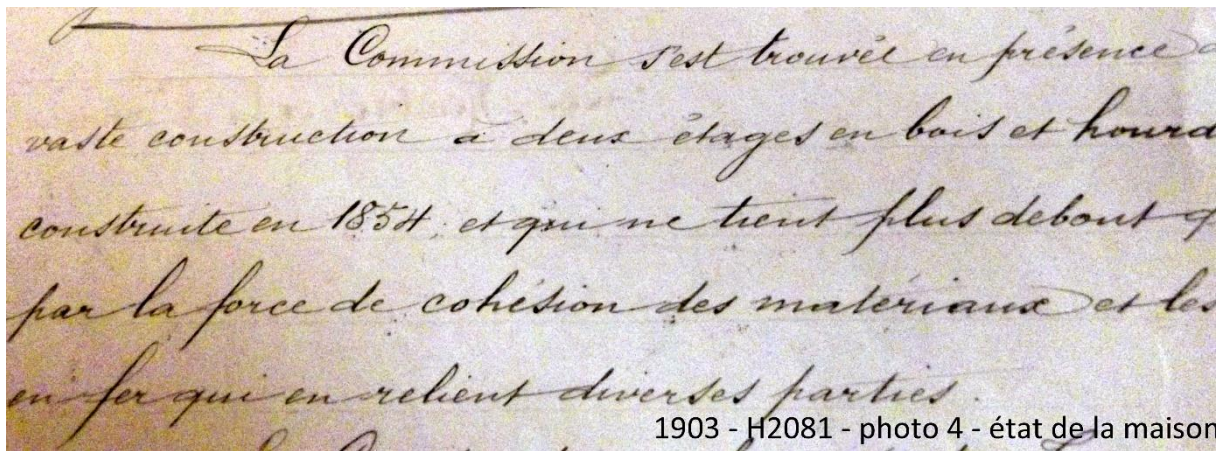 La Commission s'est trouvée en présence
vaste construction a deux étages en bois et hourd
construite en 1854, et qui ne tient plus debout q
par la force de cohésion des matériaux et les
en fer qui en relient diverses parties.
1903 - H2081 - photo 4 - état de la maison